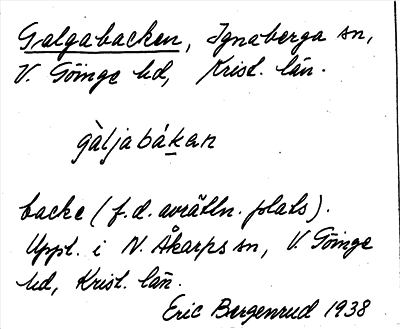 Galgabacken, Ignaberga sn,
V. Göinge hd, Krist. län.
gàljabákan
backe (f.d. avrättn. plats).
Uppt. i N. Åkarps sn, V. Göinge
hd, Krist. län.
Eric Bergenrud 1938